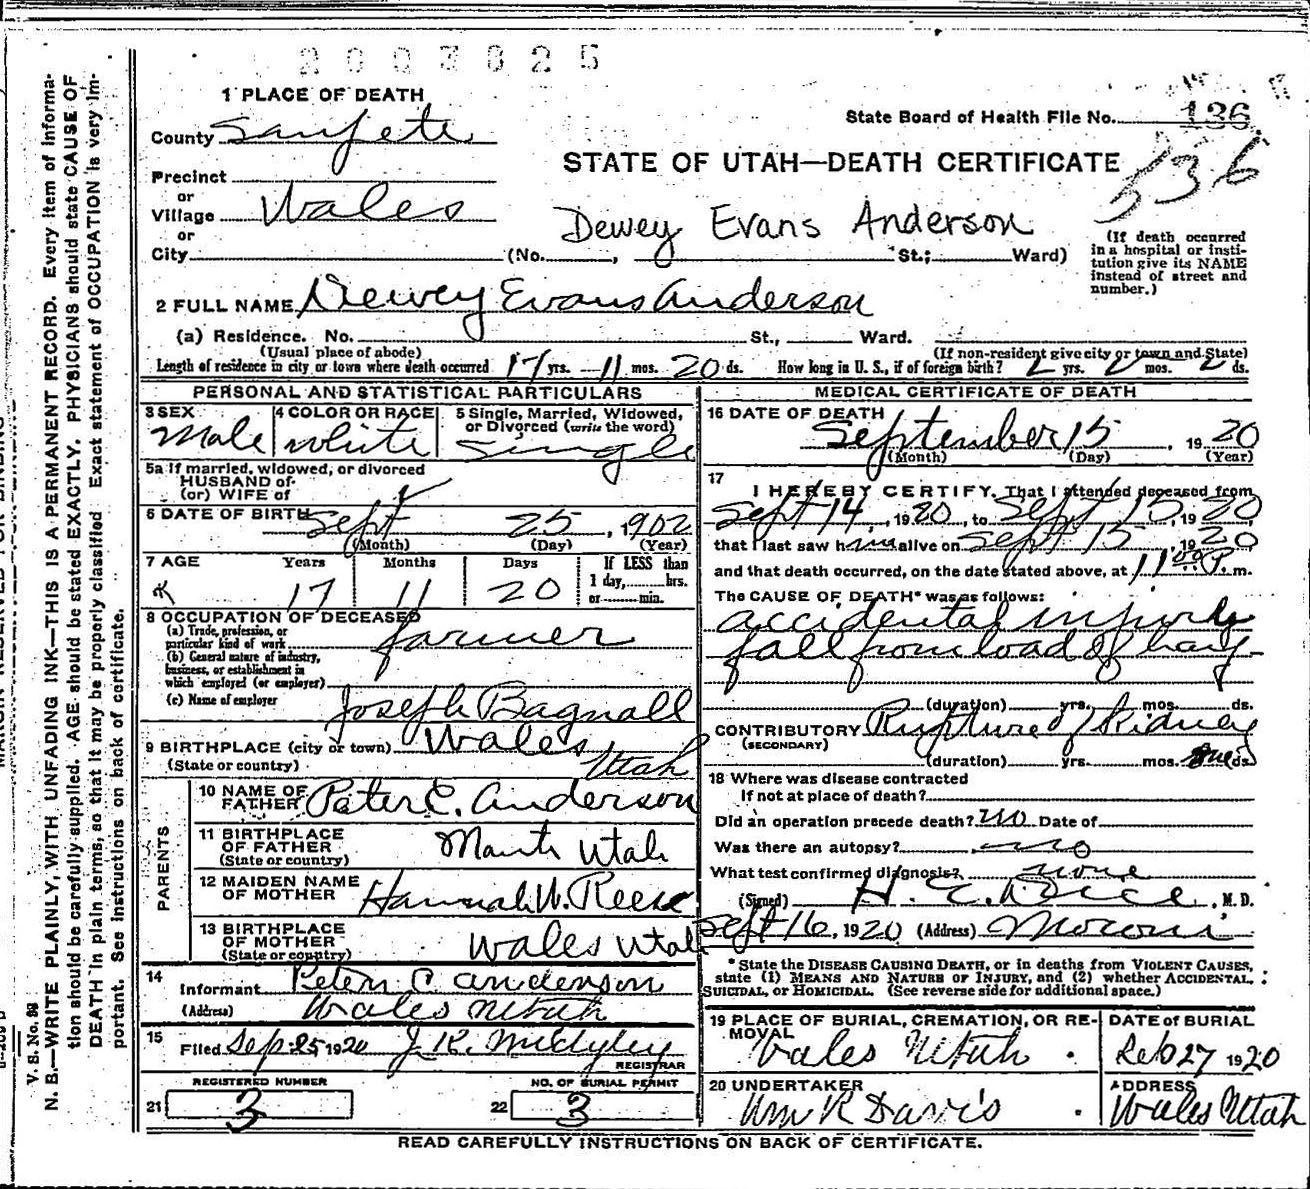 2003625
1 PLACE OF DEATH
State Board of Health File No. 136
536
County Sanpete
STATE OF UTAH—DEATH CERTIFICATE
Precinct
or
Village Wales
or
Dewey Evans Anderson
City (No. , St.; Ward)
(If death occurred
in a hospital or insti-
tution give its NAME
instead of street and
number.)
2 FULL NAME Dewey Evans Anderson
(a) Residence. No. St., Ward.
(Usual place of abode)
(If non-resident give city or town and State)
Length of residence in city or town where death occurred 17 yrs. 11 mos. 20 ds. How long in U. S., if of foreign birth? yrs. mos. ds.
PERSONAL AND STATISTICAL PARTICULARS
3 SEX
Male
4 COLOR OR RACE
White
5 Single, Married, Widowed,
or Divorced (write the word)
Single
5a If married, widowed, or divorced
HUSBAND of
(or) WIFE of
6 DATE OF BIRTH Sept 25, 1902
(Month) (Day) (Year)
7 AGE Years Months Days If LESS than
1 day, hrs.
or min.
17 11 20
8 OCCUPATION OF DECEASED
(a) Trade, profession, or
particular kind of work farmer
(b) General nature of industry,
business, or establishment in
which employed (or employer)
(c) Name of employer Joseph Bagnall
9 BIRTHPLACE (city or town) Wales
(State or country) Utah
PARENTS
10 NAME OF
FATHER Peter C. Anderson
11 BIRTHPLACE
OF FATHER
(State or country) Manti Utah
12 MAIDEN NAME
OF MOTHER Hannah W. Reese
13 BIRTHPLACE
OF MOTHER
(State or country) Wales Utah
14
Informant Peter C Anderson
(Address) Wales Utah
15
Filed Sep 25 1920 J. K. Midgley
REGISTRAR
REGISTERED NUMBER NO. OF BURIAL PERMIT
21 3 22 3
MEDICAL CERTIFICATE OF DEATH
16 DATE OF DEATH
September 15, 1920
(Month) (Day) (Year)
17
I HEREBY CERTIFY, That I attended deceased from
Sept 14, 1920, to Sept 15, 1920
that I last saw him alive on Sept 15 1920
and that death occurred, on the date stated above, at 11 00 P. m.
The CAUSE OF DEATH* was as follows:
accidental injury
fall from load of hay
(duration) yrs. mos. ds.
CONTRIBUTORY Rupture of Kidney
(SECONDARY)
(duration) yrs. mos. ds.
18 Where was disease contracted
If not at place of death?
Did an operation precede death? no Date of
Was there an autopsy? no
What test confirmed diagnosis? none
(Signed) H. C. , M. D.
Sept 16, 1920 (Address) Moroni
*State the DISEASE CAUSING DEATH, or in deaths from VIOLENT CAUSES,
state (1) MEANS AND NATURE OF INJURY, and (2) whether ACCIDENTAL,
SUICIDAL, or HOMICIDAL. (See reverse side for additional space.)
19 PLACE OF BURIAL, CREMATION, OR RE-
MOVAL
Wales Utah
DATE of BURIAL
27 1920
20 UNDERTAKER
Wm R Davis
ADDRESS
Wales Utah
READ CAREFULLY INSTRUCTIONS ON BACK OF CERTIFICATE.
V. S. No. 98
N. B.—WRITE PLAINLY, WITH UNFADING INK—THIS IS A PERMANENT RECORD. Every item of informa-
tion should be carefully supplied. AGE should be stated EXACTLY. PHYSICIANS should state CAUSE OF
DEATH in plain terms, so that it may be properly classified. Exact statement of OCCUPATION is very im-
portant. See instructions on back of certificate.